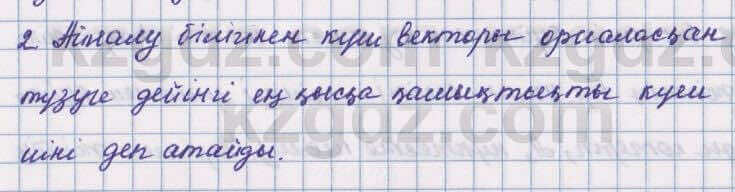 2 Айналу білігінен күш векторы орналасқан
түзуге дейінгі ең қысқа қашықтықты күш
иіні деп атайды.
kzgdz.com